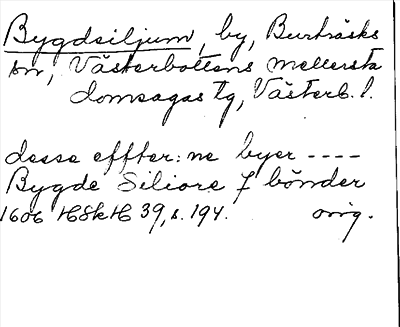 Bygdsiljum, by, Burträsks
sn, Västerbottens mellersta
domsagas tg, Västerb. l.
desse effter:ne byer ----
Bygde Siliore 7 bönder
1606 HSkH 39, s. 194. orig.